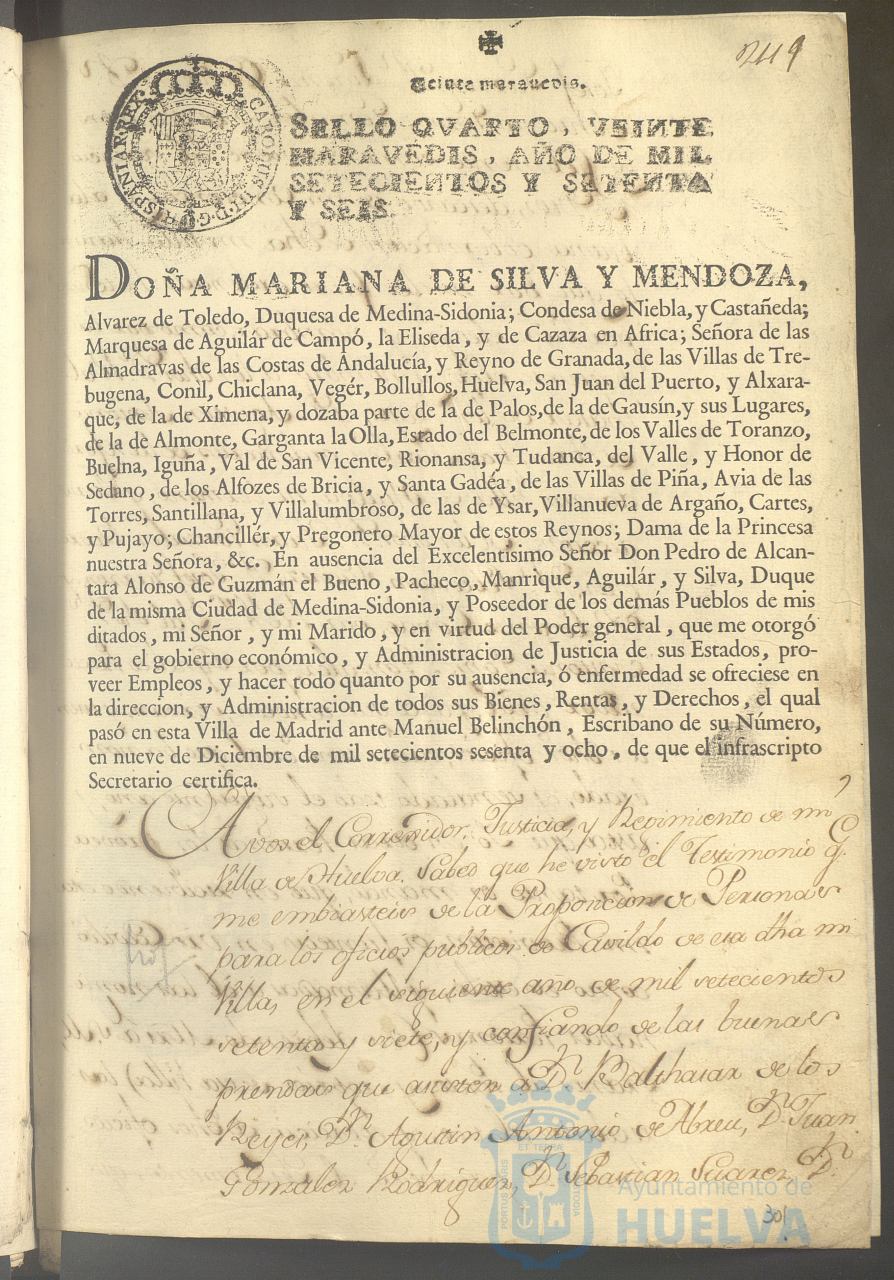 2119
Veinte maravedis.
SELLO QVARTO, VEINTE
MARAVEDIS, AÑO DE MIL
SETECIENTOS Y SETENTA
Y SEIS.
CAROLUS III·D·G·HISPANIAR·REX
DOÑA MARIANA DE SILVA Y MENDOZA,
Alvarez de Toledo, Duquesa de Medina-Sidonia; Condesa de Niebla, y Castañeda;
Marquesa de Aguilár de Campó, la Eliseda, y de Cazaza en Africa; Señora de las
Almadravas de las Costas de Andalucía, y Reyno de Granada, de las Villas de Tre-
bugena, Conìl, Chiclana, Vegér, Bollullos, Huelva, San Juan del Puerto, y Alxara-
que, de la de Ximena, y dozaba parte de la de Palos, de la de Gausín, y sus Lugares,
de la de Almonte, Garganta la Olla, Estado del Belmonte, de los Valles de Toranzo,
Buelna, Iguña, Val de San Vicente, Rionansa, y Tudanca, del Valle, y Honor de
Sedano, de los Alfozes de Bricia, y Santa Gadéa, de las Villas de Piña, Avia de las
Torres, Santillana, y Villalumbroso, de las de Ysar, Villanueva de Argaño, Cartes,
y Pujayo; Chancillér, y Pregonero Mayor de estos Reynos; Dama de la Princesa
nuestra Señora, &c. En ausencia del Excelentisimo Señor Don Pedro de Alcan-
tara Alonso de Guzmán el Bueno, Pacheco, Manrique, Aguilár, y Silva, Duque
de la misma Ciudad de Medina-Sidonia, y Poseedor de los demás Pueblos de mis
ditados, mi Señor, y mi Marido, y en virtud del Poder general, que me otorgó
para el gobierno económico, y Administracion de Justicia de sus Estados, pro-
veer Empleos, y hacer todo quanto por su ausencia, ó enfermedad se ofreciese en
la direccion, y Administracion de todos sus Bienes, Rentas, y Derechos, el qual
pasó en esta Villa de Madrid ante Manuel Belinchón, Escribano de su Número,
en nueve de Diciembre de mil setecientos sesenta y ocho, de que el infrascripto
Secretario certifica.
A vos el Corregidor, Justicia, y Regimiento de mi
Villa de Huelva. Sabed que he visto el Testimonio q.
me embiasteis de la Proposicion de Personas
para los oficios publicos de Cavildo de esa dha mi
Villa, en el siguiente año de mil setecientos
setenta y siete, y confiando de las buenas
prendas que asisten a Dn. Balthasar de los
Reyes, Dn. Agustin Antonio de Abreu, Dn. Juan
Gonzalez Rodriguez, Dn. Sebastian Suarez, Dn.
301
Ayuntamiento de
HUELVA